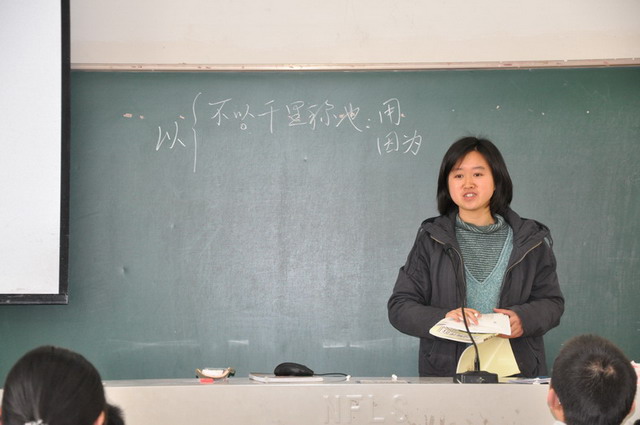 以{不以千里称也:用
因为
NFLS